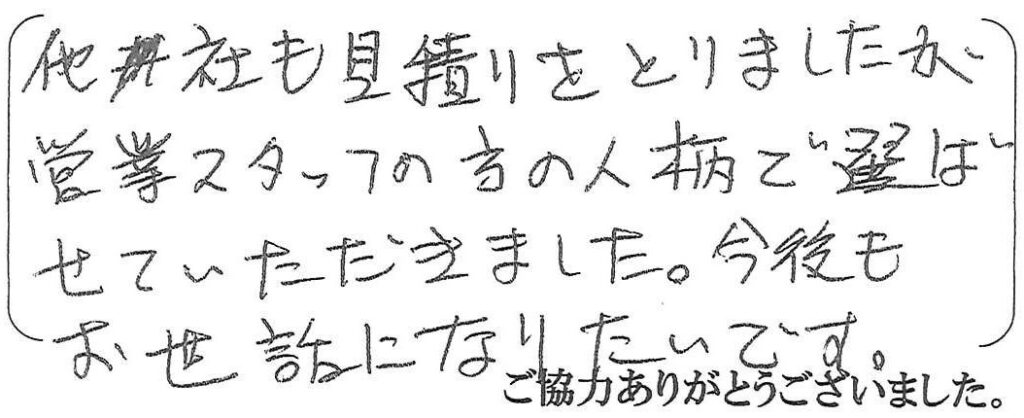 他社も見積りをとりましたが
営業スタッフの方の人柄で選ば
せていただきました。今後も
お世話になりたいです。
ご協力ありがとうございました。